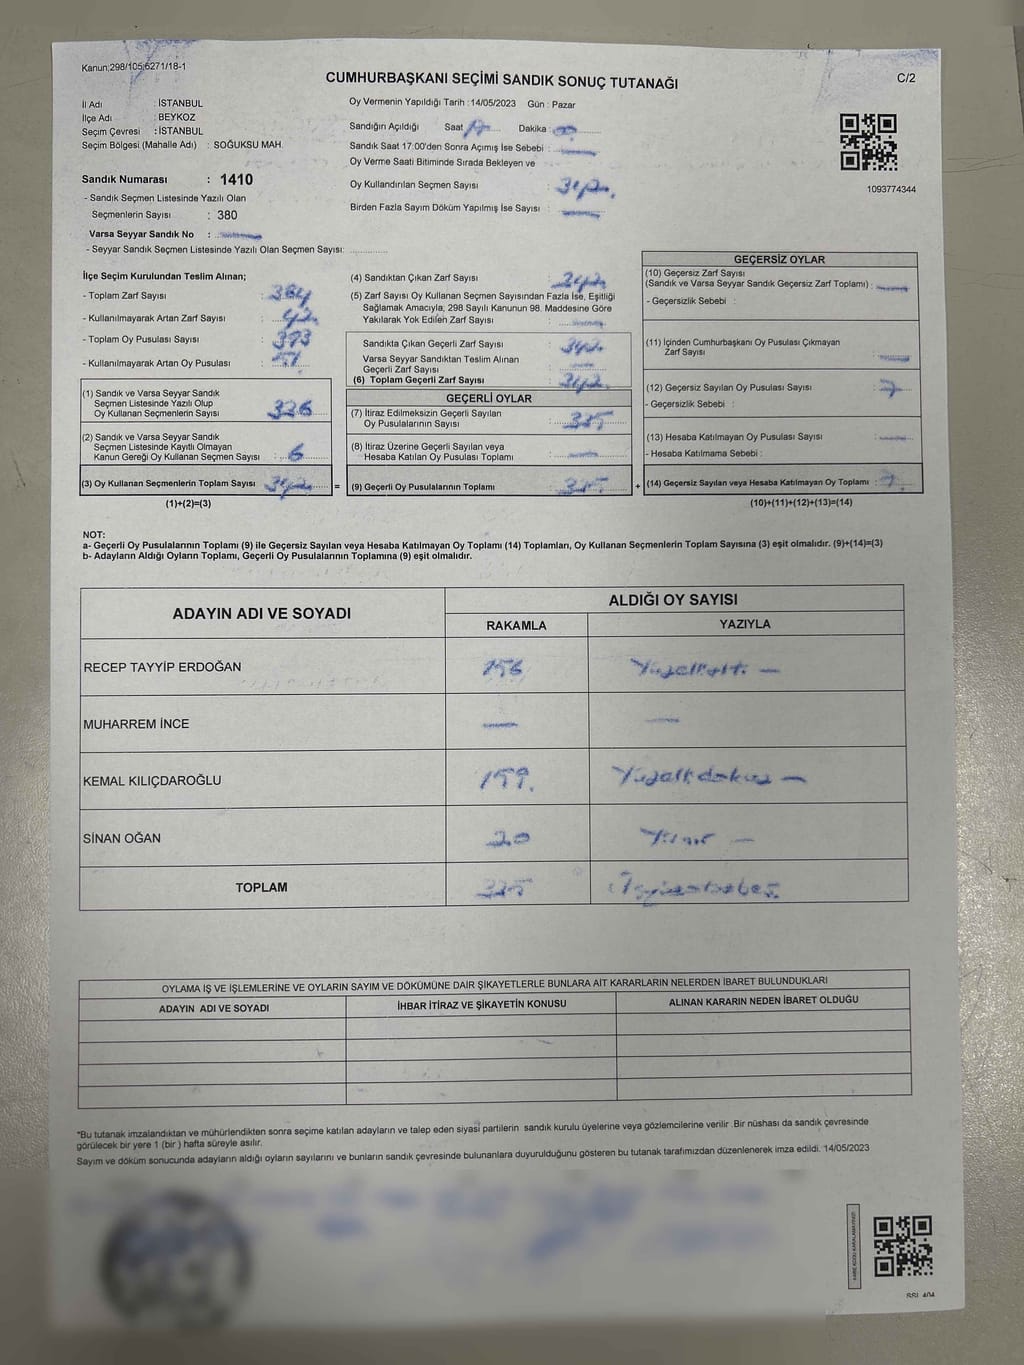 Kanun:298/105;6271/18-1
CUMHURBAŞKANI SEÇİMİ SANDIK SONUÇ TUTANAĞI
C/2
İl Adı : İSTANBUL
İlçe Adı : BEYKOZ
Seçim Çevresi : İSTANBUL
Seçim Bölgesi (Mahalle Adı) : SOĞUKSU MAH.
Sandık Numarası : 1410
- Sandık Seçmen Listesinde Yazılı Olan
Seçmenlerin Sayısı : 380
Varsa Seyyar Sandık No :
- Seyyar Sandık Seçmen Listesinde Yazılı Olan Seçmen Sayısı:
Oy Vermenin Yapıldığı Tarih :14/05/2023 Gün : Pazar
Sandığın Açıldığı Saat Dakika :
Sandık Saat 17:00'den Sonra Açımış İse Sebebi :
Oy Verme Saati Bitiminde Sırada Bekleyen ve
Oy Kullandırılan Seçmen Sayısı : 342.
Birden Fazla Sayım Döküm Yapılmış İse Sayısı :
1093774344
İlçe Seçim Kurulundan Teslim Alınan;
- Toplam Zarf Sayısı : 384
- Kullanılmayarak Artan Zarf Sayısı : 42
- Toplam Oy Pusulası Sayısı : 393
- Kullanılmayarak Artan Oy Pusulası : 51
(1) Sandık ve Varsa Seyyar Sandık
Seçmen Listesinde Yazılı Olup
Oy Kullanan Seçmenlerin Sayısı 336
(2) Sandık ve Varsa Seyyar Sandık
Seçmen Listesinde Kayıtlı Olmayan
Kanun Gereği Oy Kullanan Seçmen Sayısı : 6
(3) Oy Kullanan Seçmenlerin Toplam Sayısı 342
(1)+(2)=(3)
=
(4) Sandıktan Çıkan Zarf Sayısı : 342
(5) Zarf Sayısı Oy Kullanan Seçmen Sayısından Fazla İse, Eşitliği
Sağlamak Amacıyla; 298 Sayılı Kanunun 98. Maddesine Göre
Yakılarak Yok Edilen Zarf Sayısı :
Sandıkta Çıkan Geçerli Zarf Sayısı : 342
Varsa Seyyar Sandıktan Teslim Alınan
Geçerli Zarf Sayısı :
(6) Toplam Geçerli Zarf Sayısı : 342.
GEÇERLİ OYLAR
(7) İtiraz Edilmeksizin Geçerli Sayılan
Oy Pusulalarının Sayısı : 335
(8) İtiraz Üzerine Geçerli Sayılan veya
Hesaba Katılan Oy Pusulası Toplamı :
(9) Geçerli Oy Pusulalarının Toplamı : 335.
+
GEÇERSİZ OYLAR
(10) Geçersiz Zarf Sayısı
(Sandık ve Varsa Seyyar Sandık Geçersiz Zarf Toplamı) :
- Geçersizlik Sebebi :
(11) İçinden Cumhurbaşkanı Oy Pusulası Çıkmayan
Zarf Sayısı :
(12) Geçersiz Sayılan Oy Pusulası Sayısı : 7
- Geçersizlik Sebebi :
(13) Hesaba Katılmayan Oy Pusulası Sayısı :
- Hesaba Katılmama Sebebi :
(14) Geçersiz Sayılan veya Hesaba Katılmayan Oy Toplamı : 7.
(10)+(11)+(12)+(13)=(14)
NOT:
a- Geçerli Oy Pusulalarının Toplamı (9) ile Geçersiz Sayılan veya Hesaba Katılmayan Oy Toplamı (14) Toplamları, Oy Kullanan Seçmenlerin Toplam Sayısına (3) eşit olmalıdır. (9)+(14)=(3)
b- Adayların Aldığı Oyların Toplamı, Geçerli Oy Pusulalarının Toplamına (9) eşit olmalıdır.
ADAYIN ADI VE SOYADI
ALDIĞI OY SAYISI
RAKAMLA YAZIYLA
RECEP TAYYİP ERDOĞAN 156 Yüzellialtı —
MUHARREM İNCE — —
KEMAL KILIÇDAROĞLU 159. Yüzellidokuz —
SİNAN OĞAN 20 Yirmi —
TOPLAM 335 Üçyüzotuzbeş
OYLAMA İŞ VE İŞLEMLERİNE VE OYLARIN SAYIM VE DÖKÜMÜNE DAİR ŞİKAYETLERLE BUNLARA AİT KARARLARIN NELERDEN İBARET BULUNDUKLARI
ADAYIN ADI VE SOYADI İHBAR İTİRAZ VE ŞİKAYETİN KONUSU ALINAN KARARIN NEDEN İBARET OLDUĞU
*Bu tutanak imzalandıktan ve mühürlendikten sonra seçime katılan adayların ve talep eden siyasi partilerin sandık kurulu üyelerine veya gözlemcilerine verilir .Bir nüshası da sandık çevresinde
görülecek bir yere 1 (bir ) hafta süreyle asılır.
Sayım ve döküm sonucunda adayların aldığı oyların sayılarını ve bunların sandık çevresinde bulunanlara duyurulduğunu gösteren bu tutanak tarafımızdan düzenlenerek imza edildi. 14/05/2023